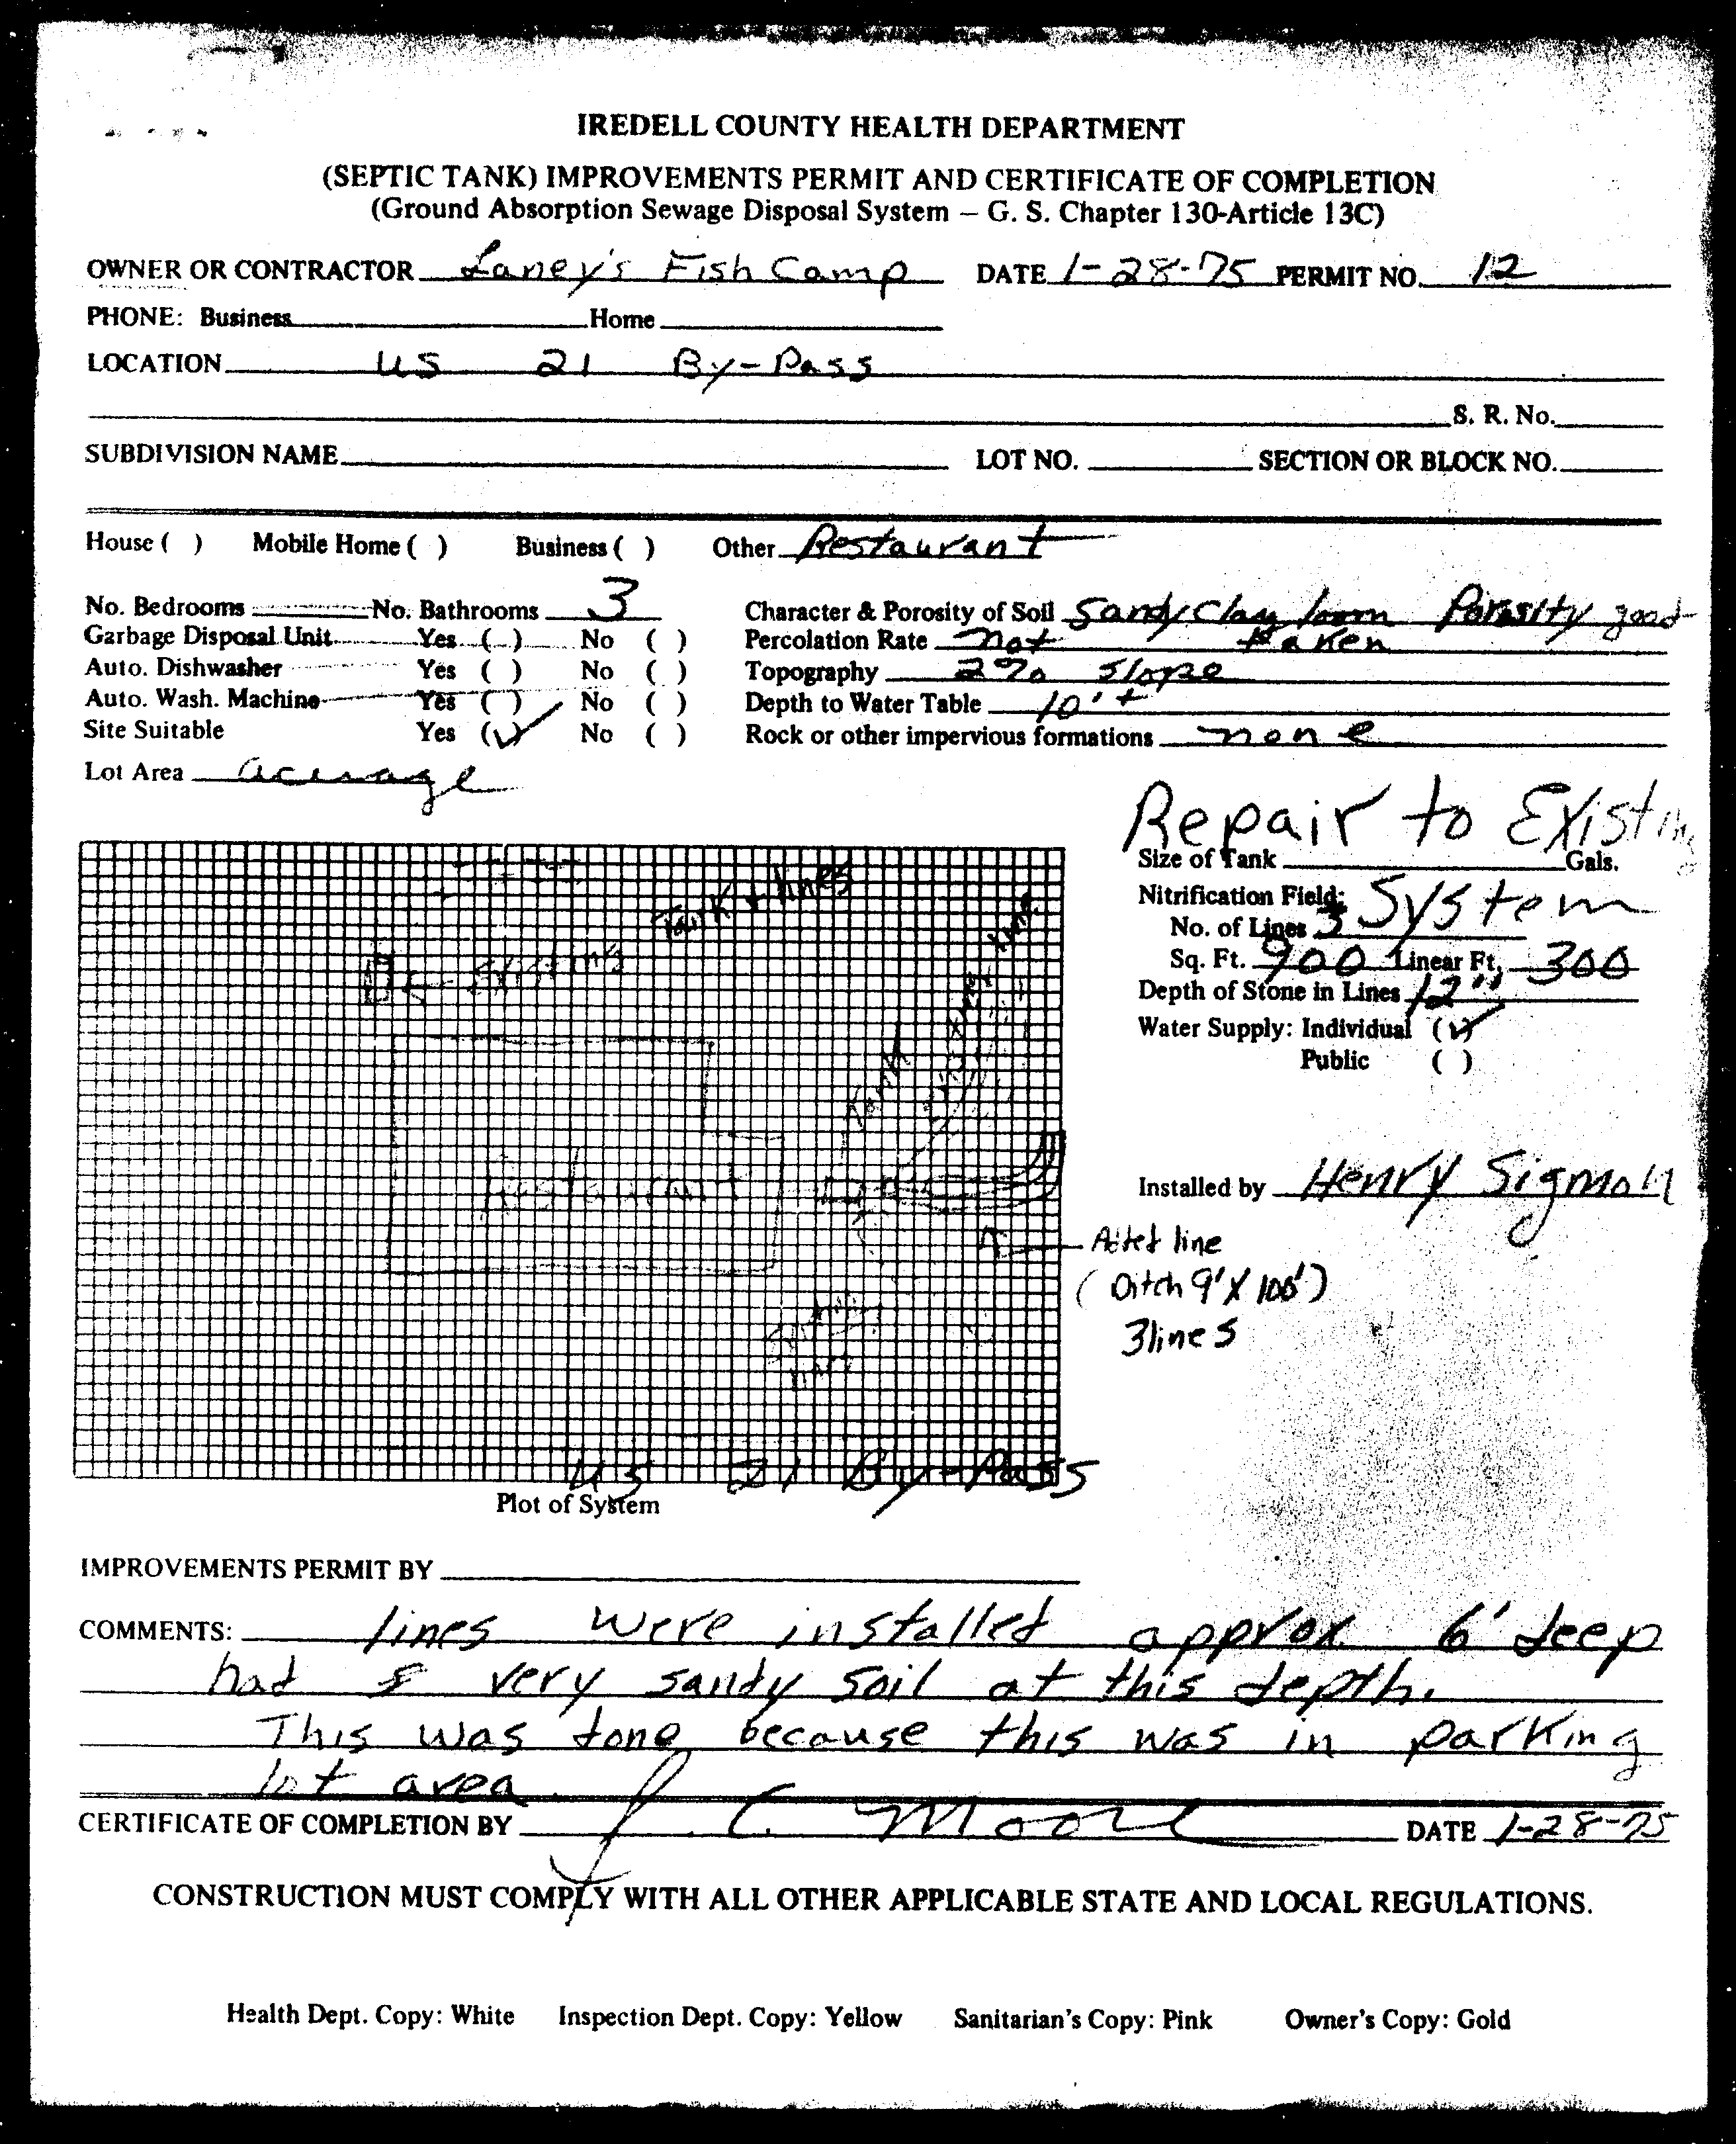 IREDELL COUNTY HEALTH DEPARTMENT
(SEPTIC TANK) IMPROVEMENTS PERMIT AND CERTIFICATE OF COMPLETION
(Ground Absorption Sewage Disposal System – G. S. Chapter 130-Article 13C)
OWNER OR CONTRACTOR Laney's Fish Camp DATE 1-28-75 PERMIT NO. 12
PHONE: Business Home
LOCATION US 21 By-Pass
S. R. No.
SUBDIVISION NAME LOT NO. SECTION OR BLOCK NO.
House ( ) Mobile Home ( ) Business ( ) Other Restaurant
No. Bedrooms No. Bathrooms 3 Character & Porosity of Soil Sandy Clay loom Porosity good
Garbage Disposal Unit Yes ( ) No ( ) Percolation Rate not taken
Auto. Dishwasher Yes ( ) No ( ) Topography 2% slope
Auto. Wash. Machine Yes ( ) No ( ) Depth to Water Table 10'+
Site Suitable Yes (✓) No ( ) Rock or other impervious formations none
Lot Area acerage
Repair to Existing
Size of Tank Gals.
Nitrification Field: System
No. of Lines 3
Sq. Ft. 900 Linear Ft. 300
Depth of Stone in Lines 12"
Water Supply: Individual (✓)
Public ( )
Tank & lines
Existing
Tank
Restaurant
Installed by Henry Sigmon
Added line
(Ditch 9' X 100')
3 lines
US 21 By-Pass
Plot of System
IMPROVEMENTS PERMIT BY
COMMENTS: lines were installed approx. 6' deep
had very sandy soil at this depth.
This was done because this was in parking
lot area
CERTIFICATE OF COMPLETION BY J. C. Moore DATE 1-28-75
CONSTRUCTION MUST COMPLY WITH ALL OTHER APPLICABLE STATE AND LOCAL REGULATIONS.
Health Dept. Copy: White Inspection Dept. Copy: Yellow Sanitarian's Copy: Pink Owner's Copy: Gold